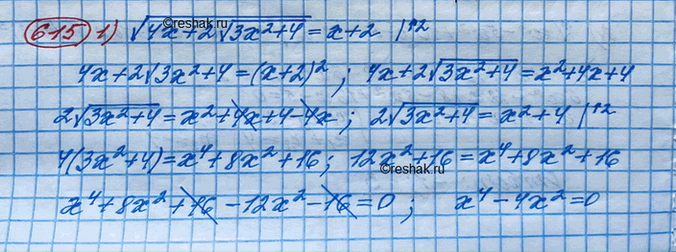 6.15 1) √(4x+2√(3x²+4)) = x+2 |↑2
©reshak.ru
4x+2√3x²+4=(x+2)²; 4x+2√(3x²+4)=x²+4x+4
2√(3x²+4)=x²+4x+4-4x; 2√(3x²+4)=x²+4 |↑2
4(3x²+4)=x⁴+8x²+16; 12x²+16=x⁴+8x²+16
©reshak.ru
x⁴+8x²+16-12x²-16=0; x⁴-4x²=0